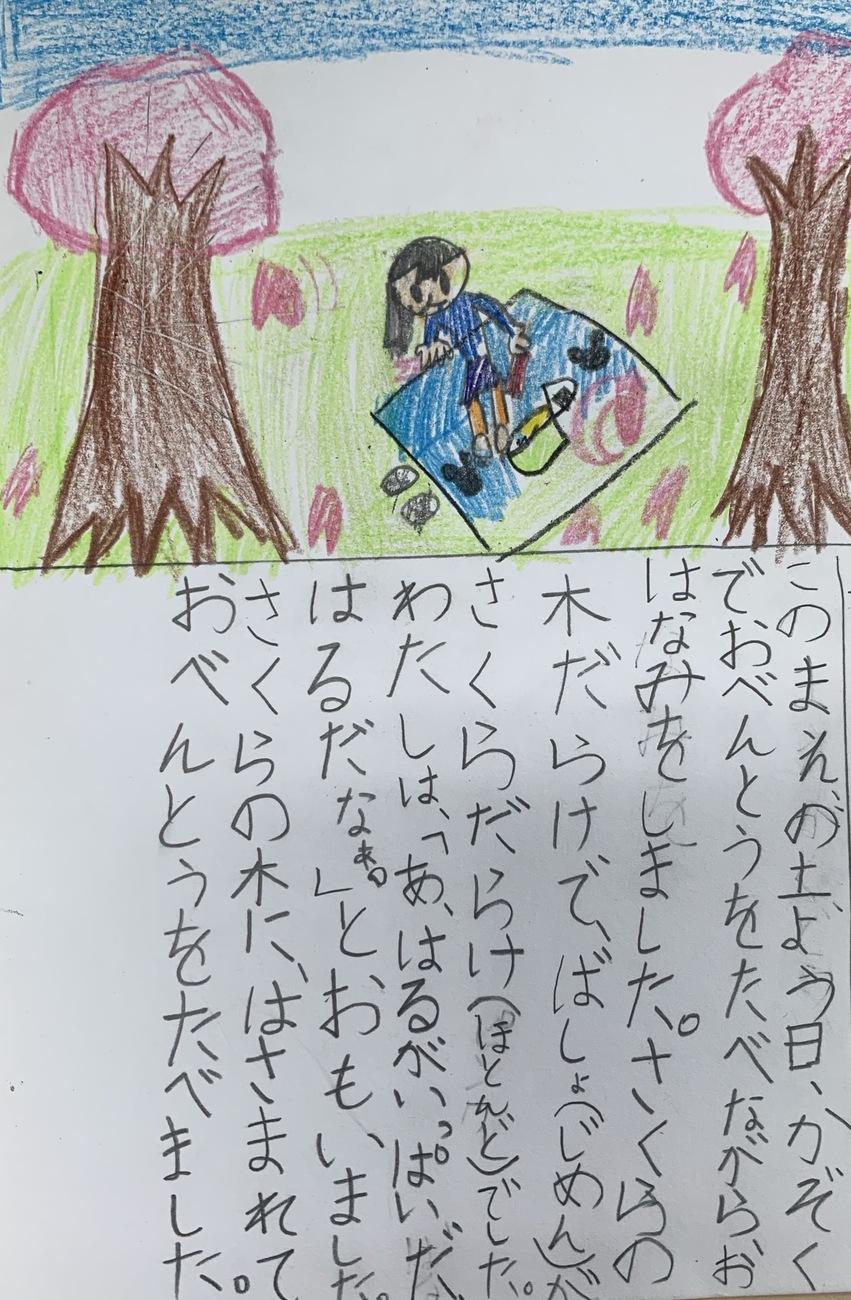 このまえの土よう日、かぞく
でおべんとうをたべながらお
はなみをしました。さくらの
木だらけで、ばしょ(じめん)が
さくらだらけ(ほとんど)でした。
わたしは、「あ、はるがいっぱいだ、
はるだなぁ。」とおもいました。
さくらの木に、はさまれて
おべんとうをたべました。